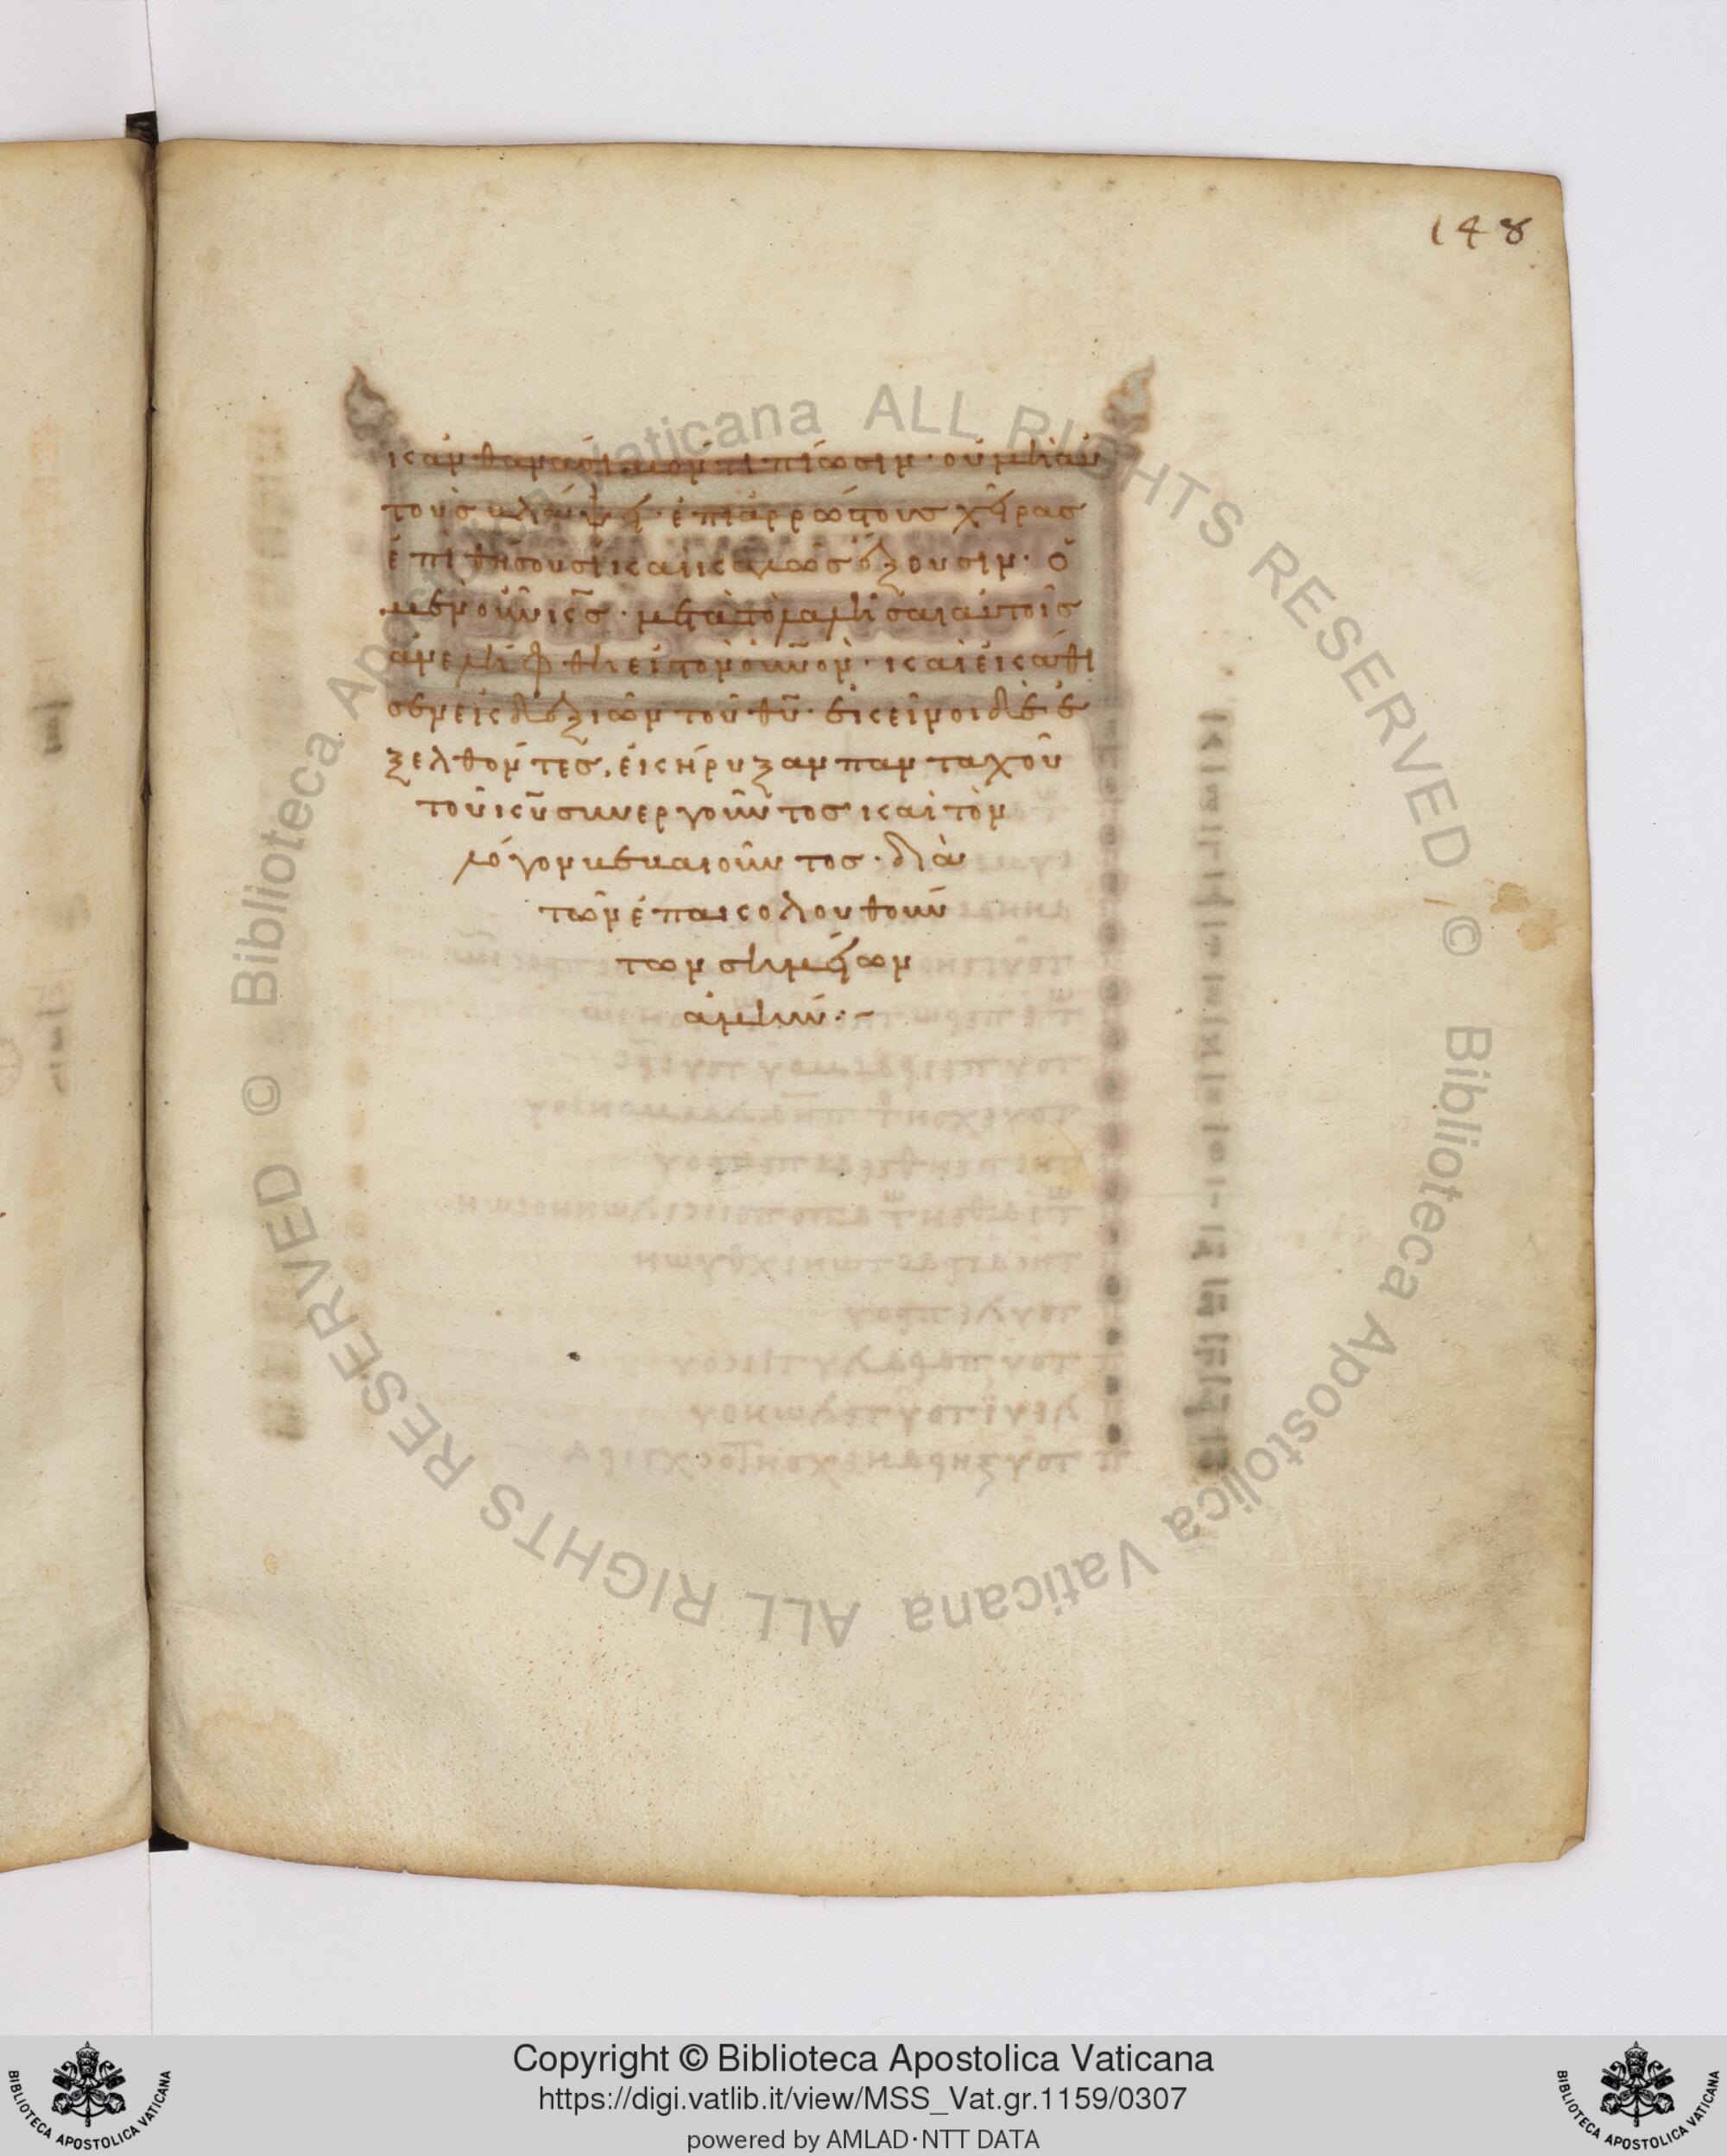 148
κἂν θανάσιμόν τι πίωσιν· οὐ μὴ αὐ
τοὺς βλάψει· ἐπὶ ἀρρώστους χεῖρας
ἐπιθήσουσι καὶ καλῶς ἕξουσιν· ὁ
μὲν οὖν κ̅ς̅· μετὰ τὸ λαλῆσαι αὐτοῖς
ἀνελήφθη εἰς τὸν οὐ̅νο̅ν· καὶ ἐκάθι
σεν ἐκ δεξιῶν τοῦ θ̅υ̅· ἐκεῖνοι δὲ ἐ
ξελθόντες, ἐκήρυξαν πανταχοῦ
τοῦ κ̅υ̅ συνεργοῦντος καὶ τὸν
λόγον βεβαιοῦντος· διὰ
τῶν ἐπακολουθούν
των σημείων
ἀμήν·–
Copyright © Biblioteca Apostolica Vaticana
https://digi.vatlib.it/view/MSS_Vat.gr.1159/0307
powered by AMLAD·NTT DATA
BIBLIOTECA APOSTOLICA VATICANA
BIBLIOTECA APOSTOLICA VATICANA
© Biblioteca Apostolica Vaticana ALL RIGHTS RESERVED
© Biblioteca Apostolica Vaticana ALL RIGHTS RESERVED